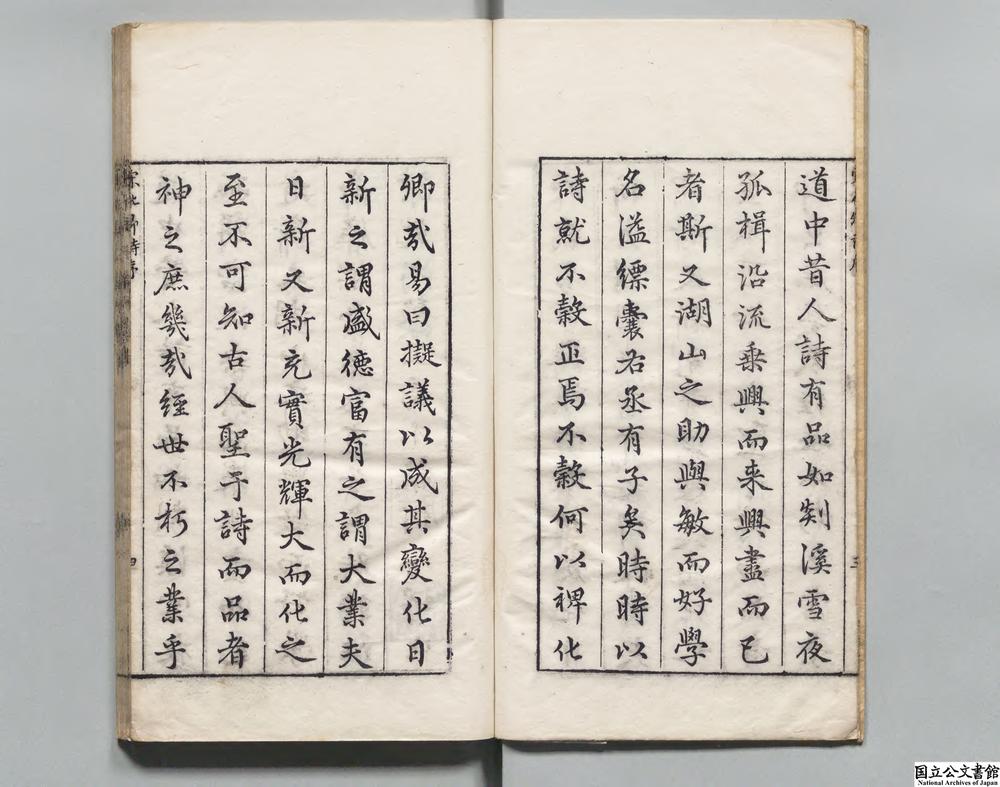 道中昔人詩有品如剡溪雪夜
孤楫沿流乗興而来興盡而已
者斯又湖山之助與敏而好學
名溢縹囊右丞有子矣時時以
詩就不榖正焉不榖何以裨化
卿哉易曰擬議以成其變化日
新之謂盛德富有之謂大業夫
日新又新充實光輝大而化之
至不可知古人聖于詩而品者
神之庶幾哉經世不朽之業乎
卿詩序
四
三
国立公文書館
National Archives of Japan